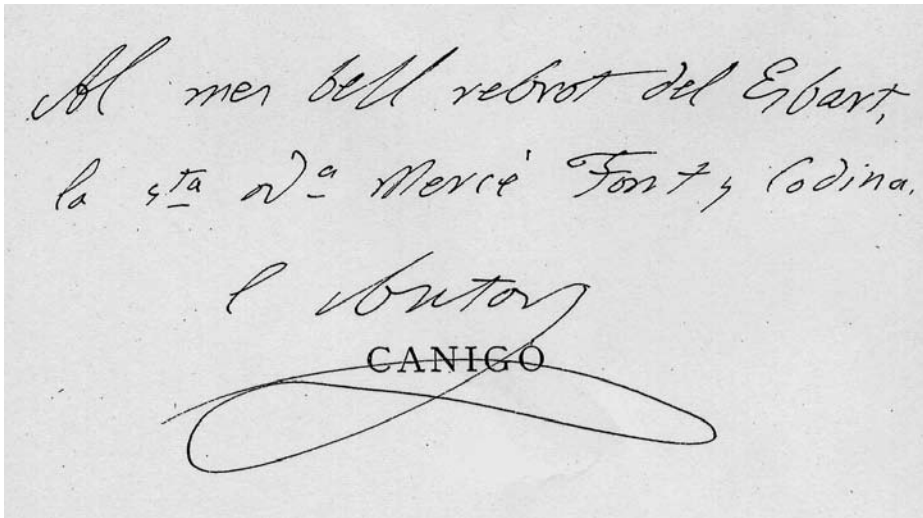 Al mes bell rebrot del Esbart,
la sta Da Mercé Font y Codina.
CANIGÓ